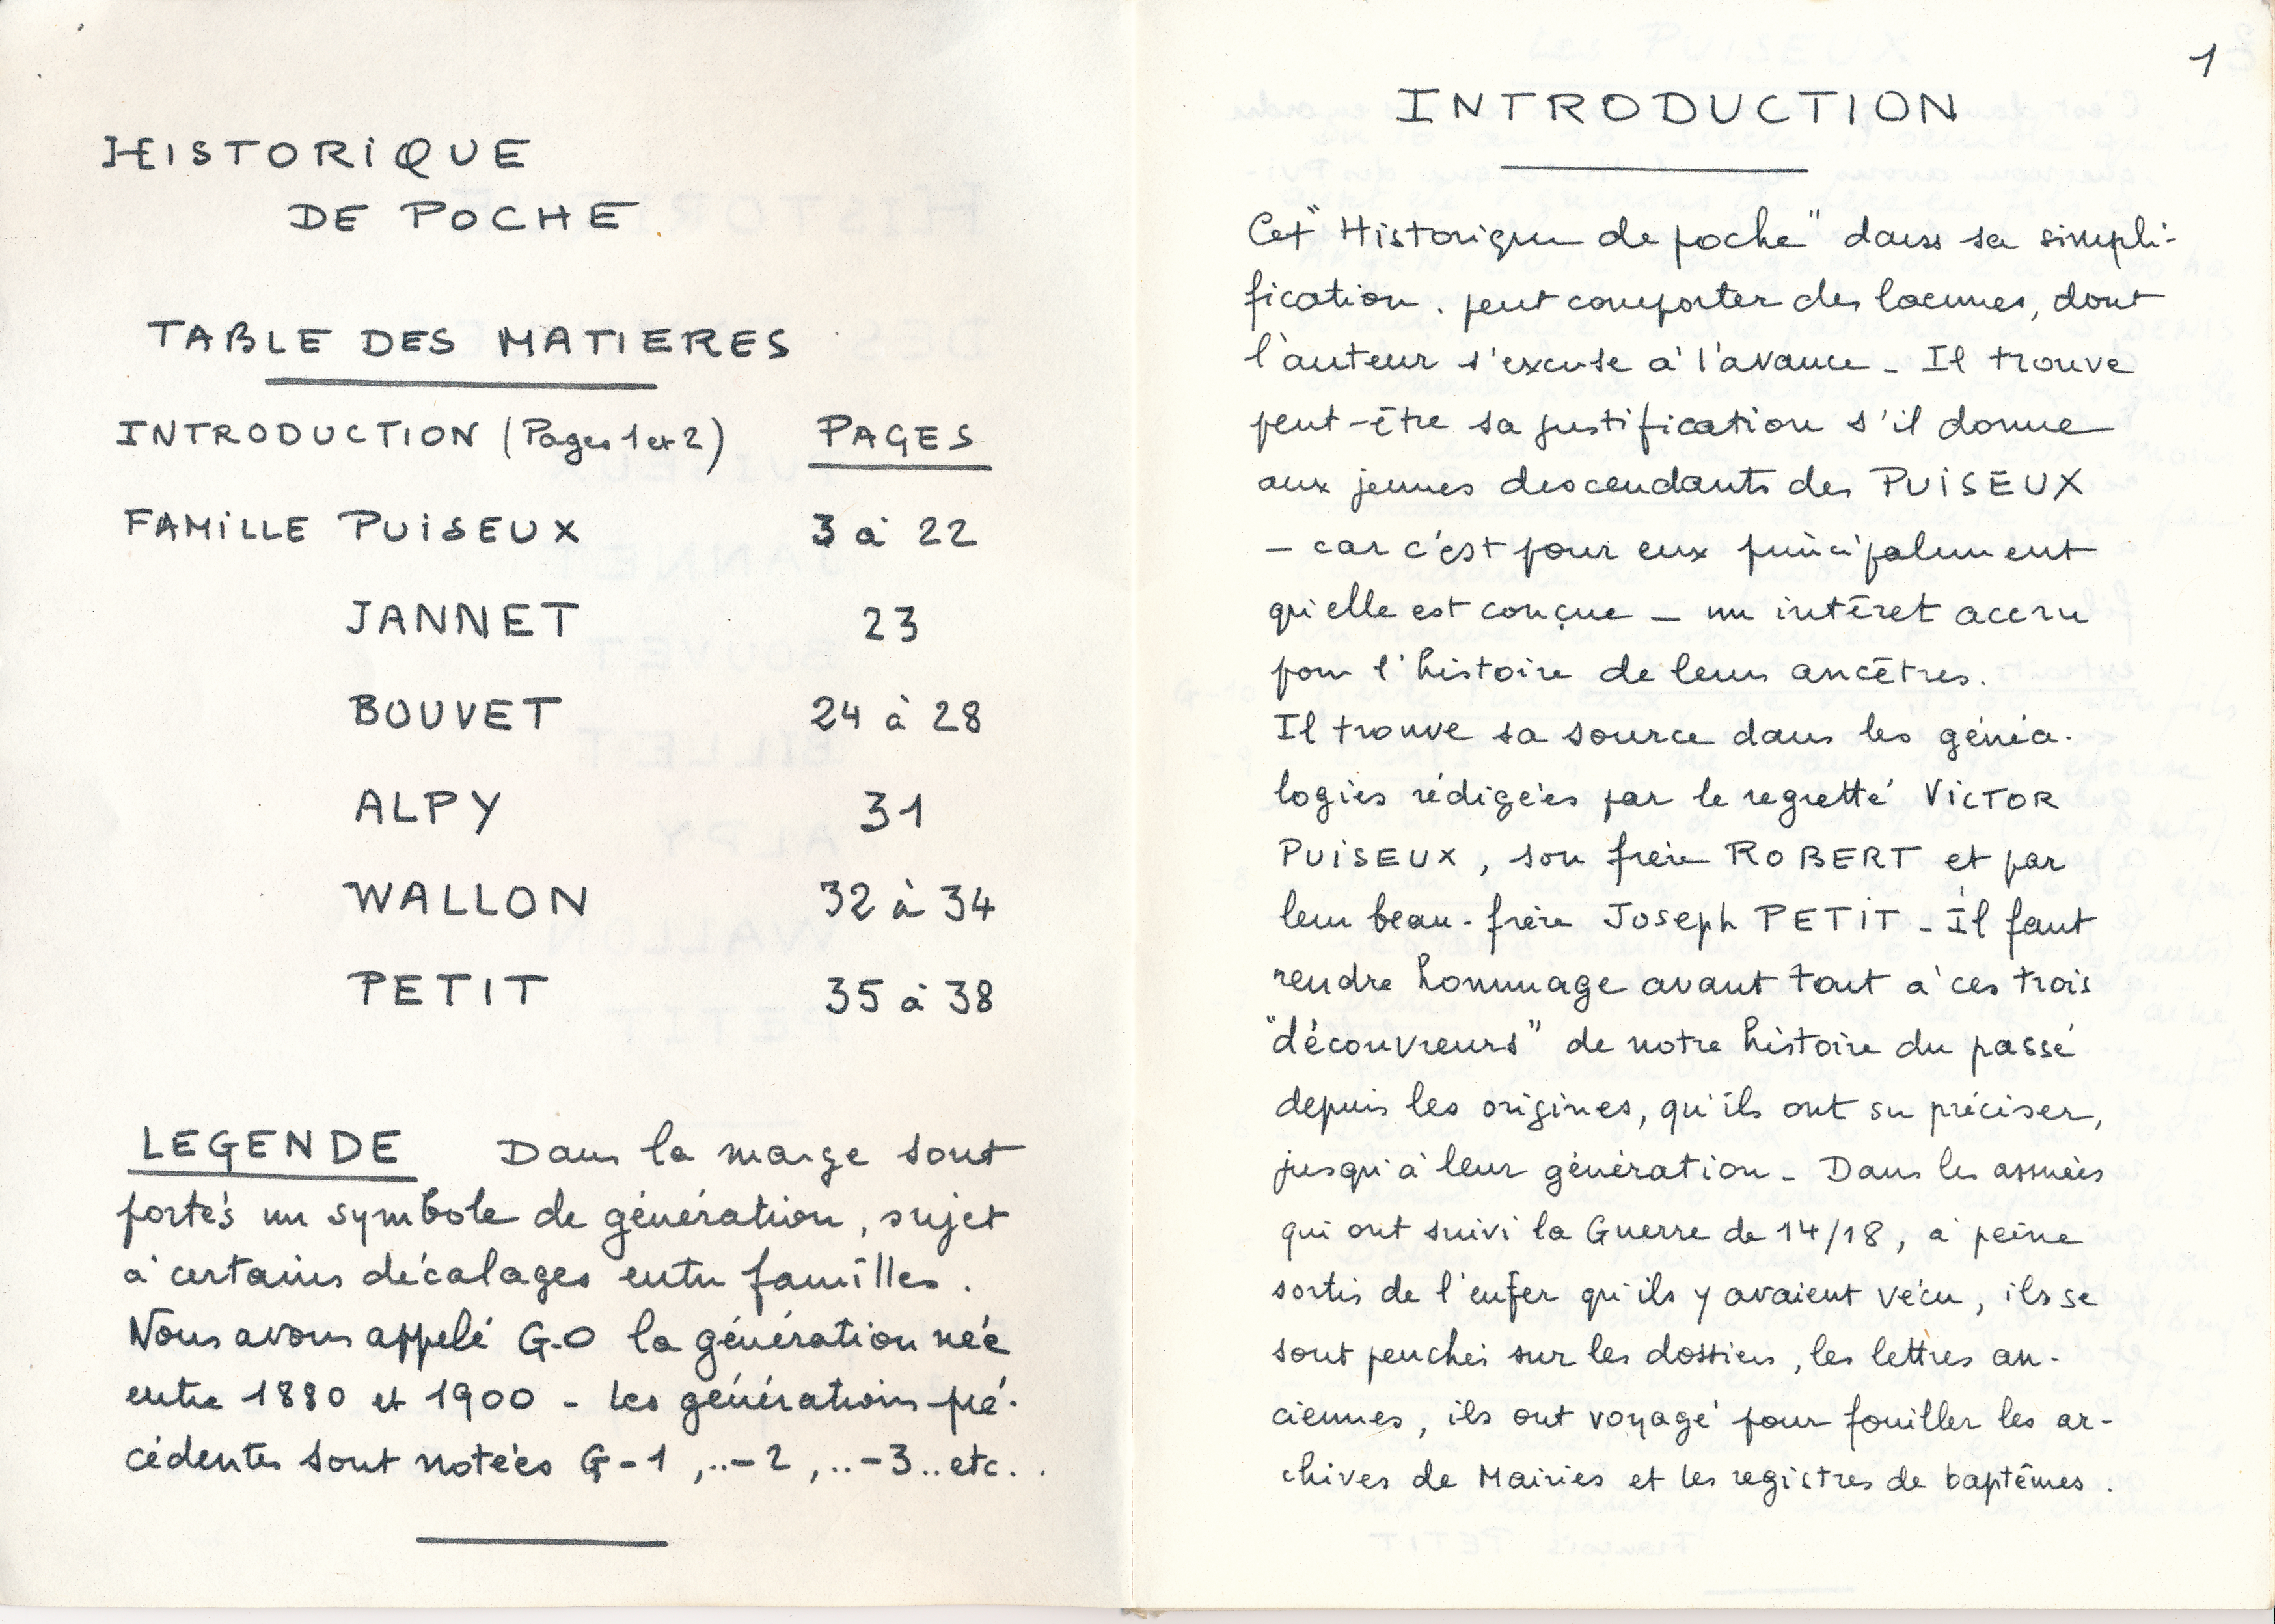 HISTORIQUE
DE POCHE
TABLE DES MATIERES
INTRODUCTION (Pages 1 et 2) PAGES
FAMILLE PUISEUX 3 à 22
JANNET 23
BOUVET 24 à 28
ALPY 31
WALLON 32 à 34
PETIT 35 à 38
LEGENDE Dans la marge sont
portés un symbole de génération, sujet
à certains décalages entre familles.
Nous avons appelé G-0 la génération née
entre 1880 et 1900 - Les générations pré-
cédentes sont notées G-1 ,..-2 ,..-3..etc..
1
INTRODUCTION
Cet "Historique de poche" dans sa simpli-
fication. peut comporter des lacunes, dont
l'auteur s'excuse à l'avance - Il trouve
peut-être sa justification s'il donne
aux jeunes descendants des PUISEUX
- car c'est pour eux principalement
qu'elle est conçue - un intéret accru
pour l'histoire de leurs ancêtres.
Il trouve sa source dans les généa-
logies rédigées par le regretté VICTOR
PUISEUX, son frère ROBERT et par
leur beau-frère Joseph PETIT - Il faut
rendre hommage avant tout à ces trois
"découvreurs" de notre histoire du passé
depuis les origines, qu'ils ont su préciser,
jusqu'à leur génération - Dans les années
qui ont suivi la Guerre de 14/18, à peine
sortis de l'enfer qu'ils y avaient vécu, ils se
sont penchés sur les dossiers, les lettres an-
ciennes, ils ont voyagé pour fouiller les ar-
chives de Mairies et les registres de baptêmes.